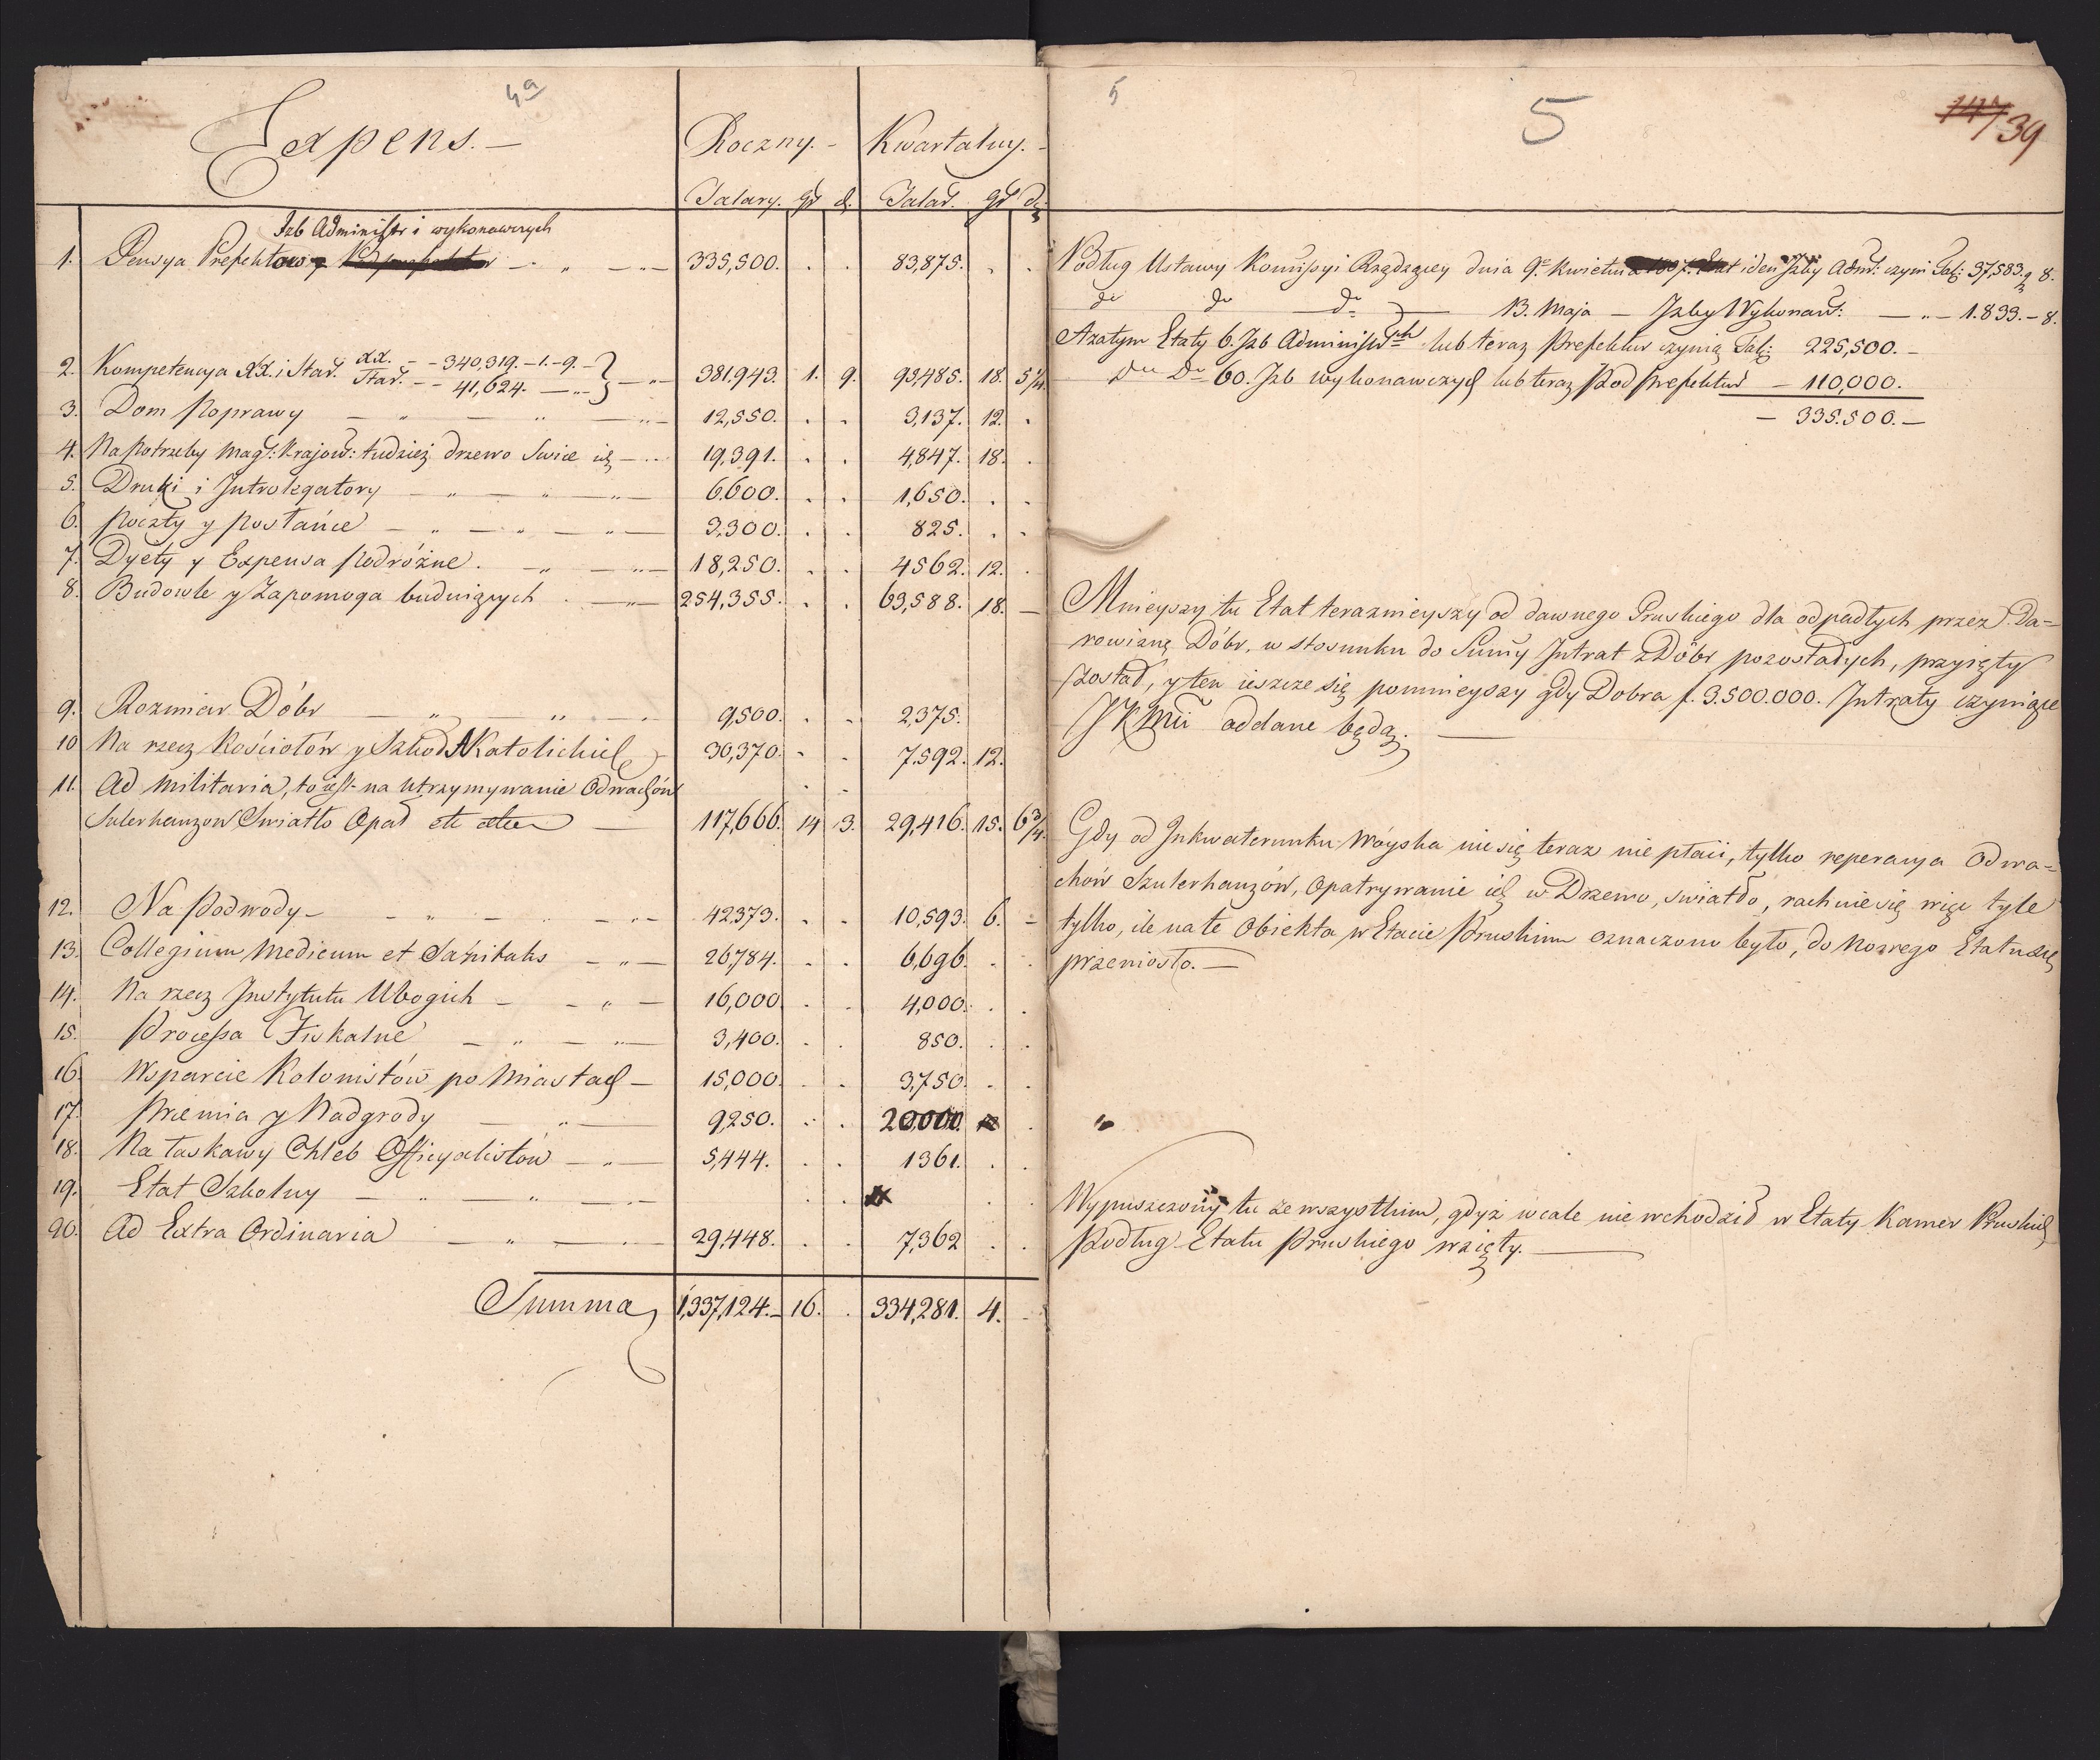 4a
Expens. —
Roczny. — Kwartalny. —
Talary. gr d. Talar. gr d.
Izb Administr i wykonawczych
1. Pensya Prefektow y — „ — „ — 335,500. . . 83,875. . .
2. Kompetencya XX. i Star. XX. — — 340,319. — 1. — 9. — 381.943. 1. 9. 95,485. 18. 5 1/4
Star. — — 41,624. — „ —
3. Dom Poprawy — „ — „ — „ — 12,550. . . 3,137. 12. .
4. Na Potrzeby Mag: Krajow: tudzież drzewo Swice itz — „ 19,391. . . 4,847. 18. .
5. Druki i Jntrolegatory — „ — „ — „ — 6.600. . . 1,650. . .
6. Poczty y Posłańce — „ — „ — „ — 3,300. . . 825. . .
7. Dyety y Expensa Podróżne. — „ — „ — 18,250. . . 4562. 12. .
8. Budowle y Zapomoga buduiących . — „ — 254,355. . . 63,588. 18. —
9. Rozmiar Dóbr — „ — „ — 9,500. . . 2,375.
10 Na rzecz Kościołów y Szkół Katolickich 30,370. . . 7.592. 12.
11. Ad Militaria, to iest na Utrzymywanie Odwachów . .
Suterhauzow Swiatło Opał etc — 117,666. 14 3. 29,416. 15. 6 3/4.
12. Na Podwody — — „ — „ — „ — 42373. . . 10,593. 6. —
13. Collegium Medicum et Sanitatis — „ — 26784. . . 6,696. . .
14. Na rzecz Jnstytutu Ubogich — — „ — 16,000. . . 4,000. . .
15. Processa Fiskalne — „ — „ — 3,400. . . 850. . .
16. Wsparcie Kolonistów po Miastach — 15,000. . . 3,750. . .
17. Premia y Nadgrody — „ — 9250. . .
18. Na łaskawy Chleb Officyalistów — „ — 5,444. . . 1361. . .
19. Etat Szkolny — „ — „ — „ — . . . .
20. Ad Extra Ordinaria — „ — „ — 29,448. . . 7,362 . .
Summa 1,337,124. — 16. . 334,281. 4. —
5
5
147 39
Podług Ustawy Komissyi Rządzącey dnia 9. Kwietnia 1807. Etat iden Jzby Adm: czyni Tal: 37,583. g 8.
do do do — 13. Maja — Jzby Wykonaw: — „ — 1.833. — 8.
Azatym Etaty 6. Jzb Administrch lub teraz Prefektur czynią Tal: 225,500. —
Do Do 60. Jzb wykonawczych lub teraz Podprefektur — 110,000.
— 335.500. —
Mnieyszy tu Etat teraznieyszy od dawnego Pruskiego dla odpadłych przez Da=
rowiznę Dóbr, w stosunku do Summy Jntrat z Dóbr pozostałych, przyięty
został, y ten ieszcze się pomnieyszy gdy Dobra f. 3.500.000. Jntraty czyniące
JKMci oddane będą. —
Gdy od Jnkwaterunku Woyska nic się teraz nie płaci, tylko reperacya Odwa=
chów Szuterhauzów, Opatrywanie ich w Drzewo, swiatło, rachuie się więc tyle
tylko, ile na te Obiekta w Etacie Pruskim oznaczono było, do Nowego Etatu się
przeniosło. —
Wypuszczony tu ze wszystkim, gdyż wcale nie wchodził w Etaty Kamer Pruskich
Podług Etatu Pruskiego wzięty. —